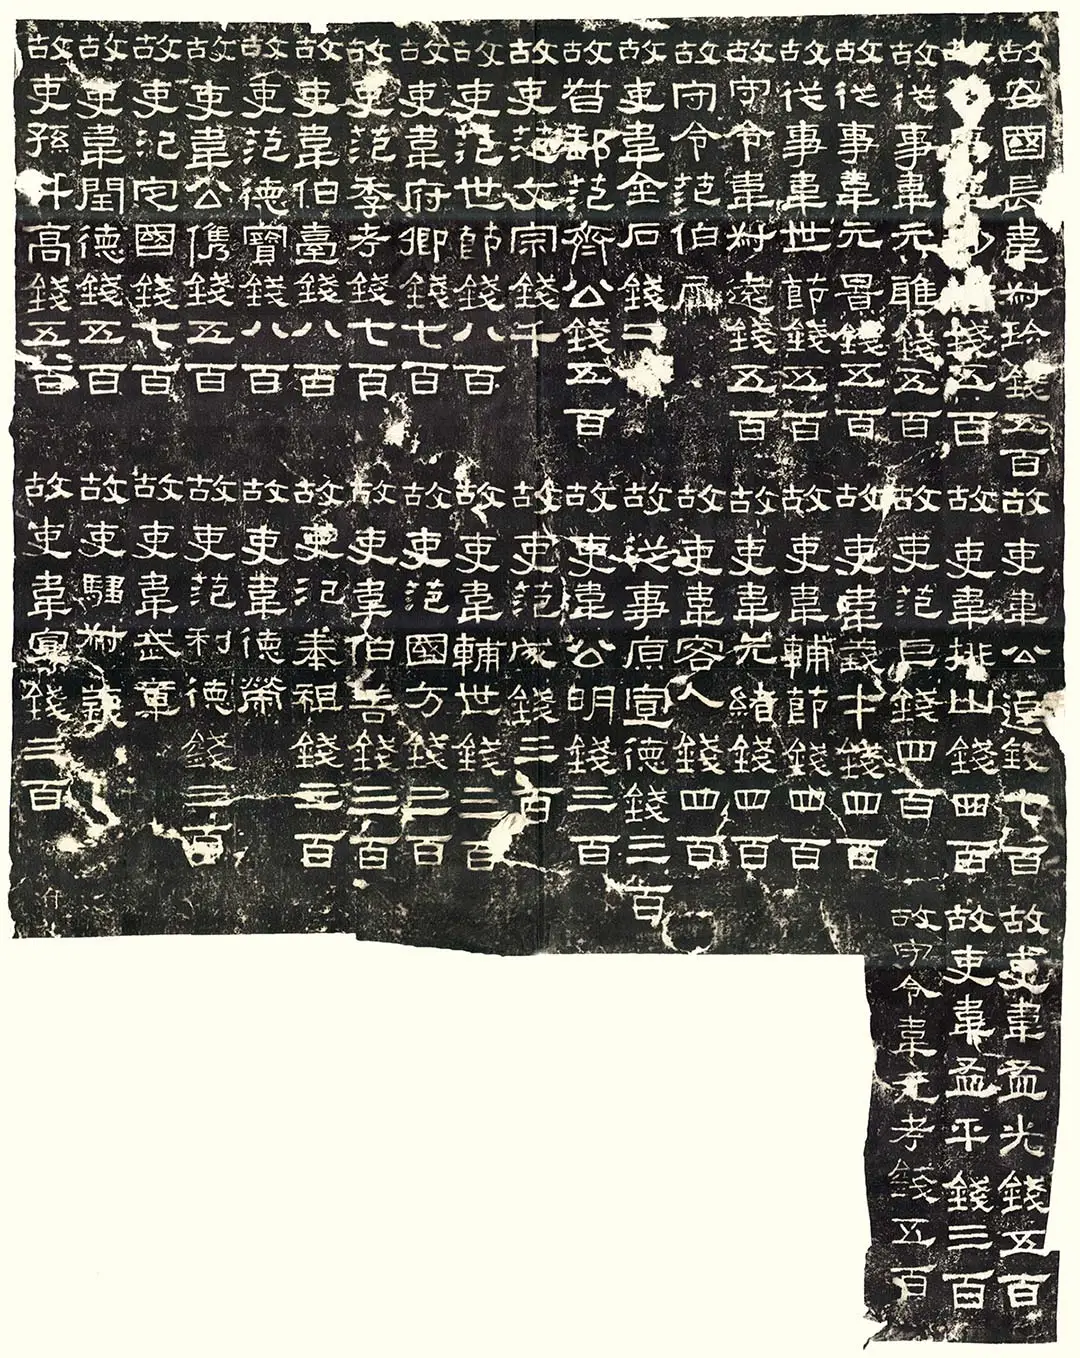 故安國長韋叔珍錢五百
故從事韋 錢五百
故從事韋元雕錢五百
故從事韋元景錢五百
故從事韋世節錢五百
故守令韋叔遠錢五百
故守令范伯犀
故吏韋金石錢二
故督郵范齊公錢五百
故吏范文宗錢千
故吏范世節錢八百
故吏韋府卿錢七百
故吏范季考錢七百
故吏韋伯臺錢八百
故吏范德寶錢八百
故吏韋公儁錢五百
故吏氾定國錢七百
故吏韋閏德錢五百
故吏孫升高錢五百
故吏韋公逴錢七百
故吏韋排山錢四百
故吏范巨錢四百
故吏韋義才錢四百
故吏韋輔節錢四百
故吏韋元緒錢四百
故吏韋客人錢四百
故從事原宣德錢三百
故吏韋公明錢三百
故吏范成錢三百
故吏韋輔世錢三百
故吏范國方錢三百
故吏韋伯善錢三百
故吏氾奉祖錢三百
故吏韋德榮
故吏范利德錢三百
故吏韋武章
故吏騶叔義
故吏韋宣錢三百
故吏韋孟光錢五百
故吏韋孟平錢三百
故守令韋元考錢五百